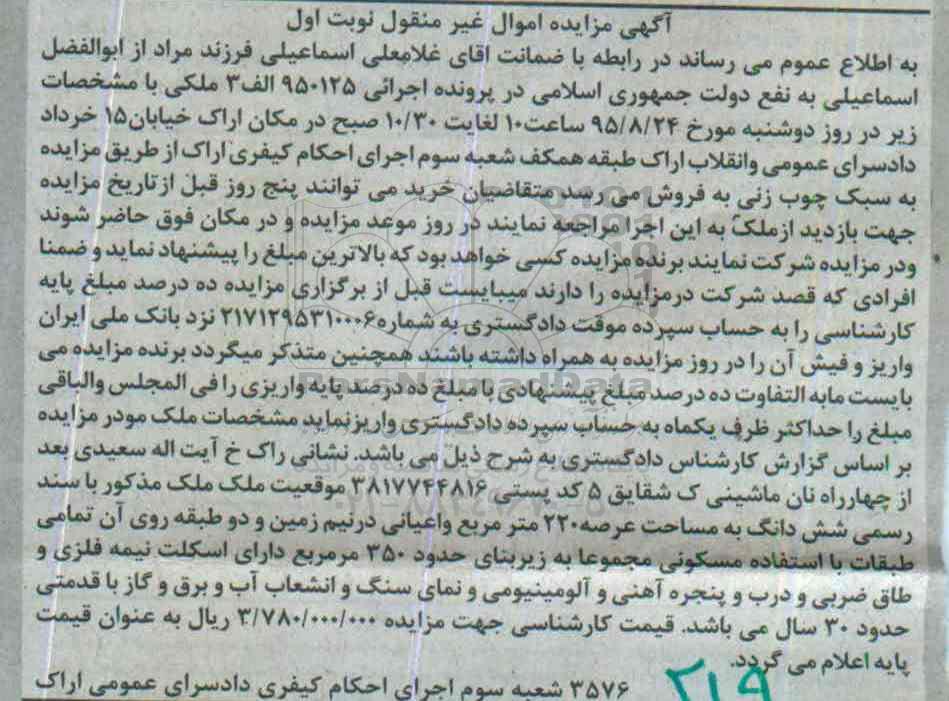 آگهی مزایده اموال غیر منقول نوبت اول
به اطلاع عموم می رساند در رابطه با ضمانت اقای غلامعلی اسماعیلی فرزند مراد از ابوالفضل
اسماعیلی به نفع دولت جمهوری اسلامی در پرونده اجرائی ۹۵۰۱۲۵ الف۳ ملکی با مشخصات
زیر در روز دوشنبه مورخ ۹۵/۸/۲۴ ساعت۱۰ لغایت ۱۰/۳۰ صبح در مکان اراک خیابان۱۵ خرداد
دادسرای عمومی وانقلاب اراک طبقه همکف شعبه سوم اجرای احکام کیفری اراک از طریق مزایده
به سبک چوب زنی به فروش می رسد متقاضیان خرید می توانند پنج روز قبل از تاریخ مزایده
جهت بازدید ازملک به این اجرا مراجعه نمایند در روز موعد مزایده و در مکان فوق حاضر شوند
ودر مزایده شرکت نمایند برنده مزایده کسی خواهد بود که بالاترین مبلغ را پیشنهاد نماید و ضمنا
افرادی که قصد شرکت درمزایده را دارند میبایست قبل از برگزاری مزایده ده درصد مبلغ پایه
کارشناسی را به حساب سپرده موقت دادگستری به شماره۲۱۷۱۲۹۵۳۱۰۰۰۶ نزد بانک ملی ایران
واریز و فیش آن را در روز مزایده به همراه داشته باشند همچنین متذکر میگردد برنده مزایده می
بایست مابه التفاوت ده درصد مبلغ پیشنهادی با مبلغ ده درصد پایه واریزی را فی المجلس والباقی
مبلغ را حداکثر ظرف یکماه به حساب سپرده دادگستری واریزنماید مشخصات ملک مودر مزایده
بر اساس گزارش کارشناس دادگستری به شرح ذیل می باشد. نشانی راک خ آیت اله سعیدی بعد
از چهارراه نان ماشینی ک شقایق ۵ کد پستی ۳۸۱۷۷۴۴۸۱۶ موقعیت ملک ملک مذکور با سند
رسمی شش دانگ به مساحت عرصه۲۲۰ متر مربع واعیانی درنیم زمین و دو طبقه روی آن تمامی
طبقات با استفاده مسکونی مجموعا به زیربنای حدود ۳۵۰ مرمربع دارای اسکلت نیمه فلزی و
طاق ضربی و درب و پنجره آهنی و آلومینیومی و نمای سنگ و انشعاب آب و برق و گاز با قدمتی
حدود ۳۰ سال می باشد. قیمت کارشناسی جهت مزایده ۳/۷۸۰/۰۰۰/۰۰۰ ریال به عنوان قیمت
پایه اعلام می گردد.
۳۵۷۶ شعبه سوم اجرای احکام کیفری دادسرای عمومی اراک
۲۱۹